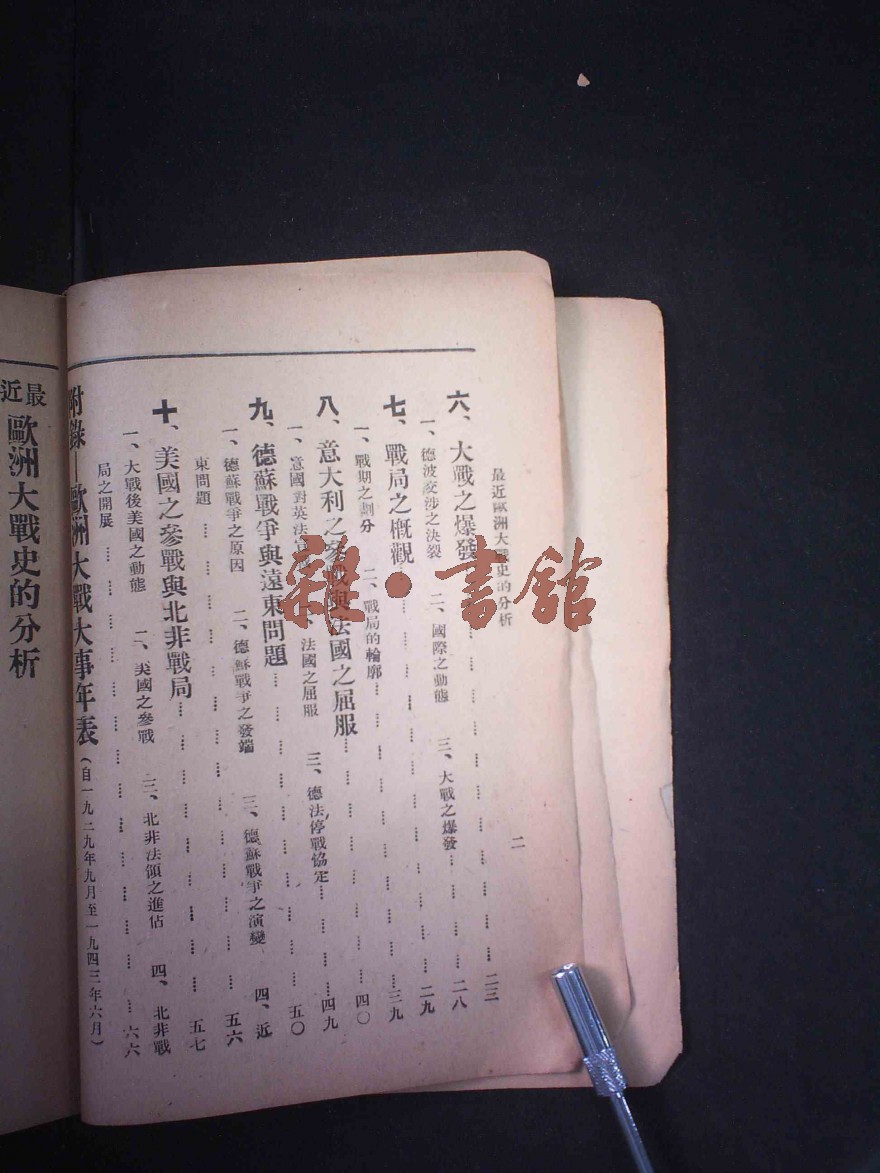 最近歐洲大戰史的分析 二
六、大戰之爆發…… …… …… 二三
一、德波交涉之決裂 二、國際之動態 三、大戰之爆發…… …… 二八
七、戰局之槪觀…… …… …… 二九
一、戰期之劃分 二、戰局的輪廓…… …… …… 三九
八、意大利之參戰與法國之屈服…… …… …… 四〇
一、意國對英法 、法國之屈服 三、德法停戰協定…… …… 四九
九、德蘇戰爭與遠東問題…… …… …… 五〇
一、德蘇戰爭之原因 二、德蘇戰爭之發端 三、德蘇戰爭之演變 四、近
東問題 …… …… …… 五六
十、美國之參戰與北非戰局…… …… …… 五七
一、大戰後美國之動態 二、美國之參戰 三、北非法領之進佔 四、北非戰
局之開展 …… …… …… 六六
附錄—歐洲大戰大事年表(自一九二九年九月至一九四三年六月)
最近歐洲大戰史的分析
雜·書館